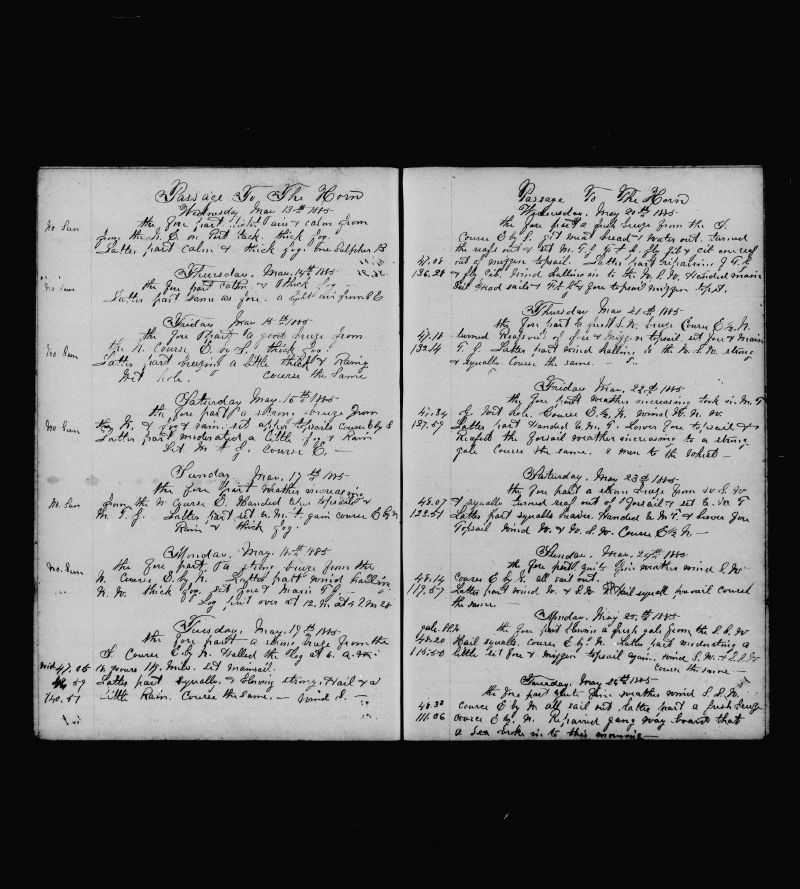 Passage To The Horn
Wednesday May 13th 1885
No Sun the fore part light airs & calm from
from the N. E. on Port tack. thick fog
Latter part calm & thick fog. one Sulpher B
Thursday. May. 14th 1885
No Sun the fore part calm & thick fog
Latter part same as fore. a light air from S E
Friday May 15th 1885
the fore part a good breeze from
No Sun the N. Course E. & thick fog.
Latter part breezing a little thick & Rainy
Wet hole. Course the Same
Saturday May. 16th 1885
the fore part a strong breeze from
No Sun the N. & fog & rain. set upper topsails course E by S
Latter part moderated a little fog & Rain
Set M T G. Course E. —
Sunday May. 17th 1885
the fore part weather increasing
No Sun from the N Course E. Handed upper topsails &
M. T. G. Latter part set U. M. T. gain course E by N
Rain & thick fog.
Monday. May. 18th 1885
No. Sun the fore part a strong breeze from the
N. Course E. by N. Latter part wind hauling
N. W. thick fog. set fore & Main T G. —
Log put over at 12. M at 47 M 28
Tuesday. May. 19th 1885
the fore part a strong breeze from the
S Course E by N. Hauled the log at 6. A. M.
47.05 18 hours 119. Miles. set mainsail.
59 Latter part squally & blowing strong. Hail & a
140.57 little Rain. Course the same. — Wind S. —
Passage To The Horn
Wednesday. May 20th 1885
the fore part a fresh breeze from the S.
Course E by S. got meat bread & water out. turned
the reefs out & set M. T. G. F. T. G. fly jib & cut one reef
47.08 out of mizzen topsail. Latter part repairing F T. G.
136.28 & fly jib. Wind hauling in to the N. W. Handed main
Thursday May 21st 1885
the fore part to fresh S. W. breeze Course E ½ N.
47.18 turned Reefs out of fore & mizzen topsail. set fore & Main
132.14 T. G. Latter part wind hauling to the W. S. W strong
& squally Course the same. —
Friday May. 22nd 1885
the fore part weather increasing took in M. T
47.34 G. Wet hole. Course E ½ N. wind W. N. W.
127.59 Latter part Handed U. M. T. Lower fore topsail &
Reeft the foresail weather increasing to a strong
gale course the same. 2 men to the Wheel —
Saturday. May 23rd 1885
the fore part a strong breeze from W S. W
48.07 & squally turned reef out of foresail & set U. M T
123.51 Latter part squally heavier. Handed U M T. & Lower fore
Topsail Wind W. & W. S. W. Course E ½ N —
Sunday. May. 24th 1885
the fore part quite fine weather wind S. W
48.14 Course E by N. all sail out.
119.57 Latter part wind W. & S. W. Hail squall prevail course
the same. —
Monday. May 25th 1885
the fore part blowing a fresh gale from the S. S. W
48.20 Hail squalls. course E by N. Latter part moderating a
115.50 little set fore & mizzen topsail again. wind S. W. & S S W
Course the same
Tuesday. May 26th 1885
the fore part quite fine weather wind S. S. W.
48.32 course E by N all sail out. latter part a fresh breeze
111.06 course E by. N. Repaired gang way board that
a sea broke in to this morning —